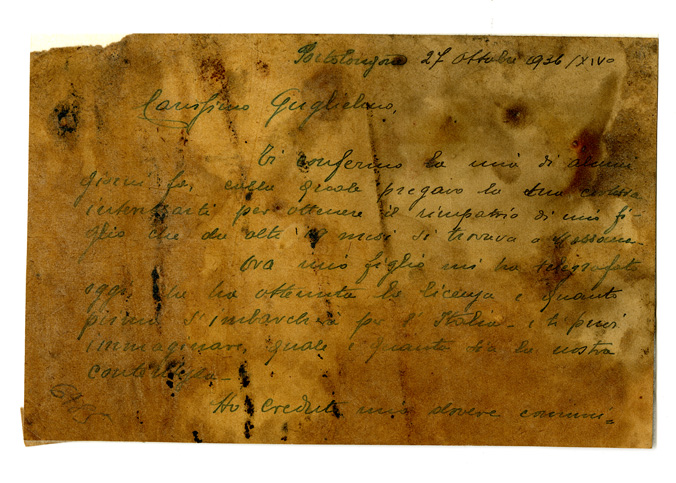 Portolongone 27 Ottobre 936/XIVo
Carissimo Guglielmo,
Ti confermo la mia di alcuni
giorni fa, colla quale pregavo la tua
interessarti per ottenere il rimpatrio di mio fi-
glio che da oltre 18 mesi si trovava a Massaua.
Ora mio figlio mi ha telegrafato
oggi ha ottenuta la licenza e quanto
prima s'imbarcherà per l'Italia - e ti puoi
immaginare, quale e quanta sia la nostra
contentezza -
Ho creduto mio dovere comuni=